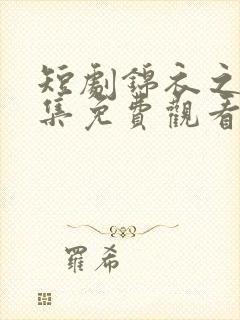 短劇錦衣之
集免費觀看
羅希